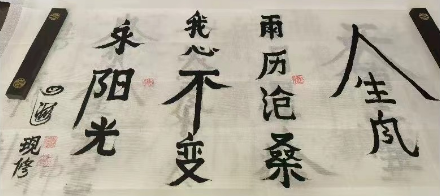 人生风
雨历沧桑
我心不变
采阳光